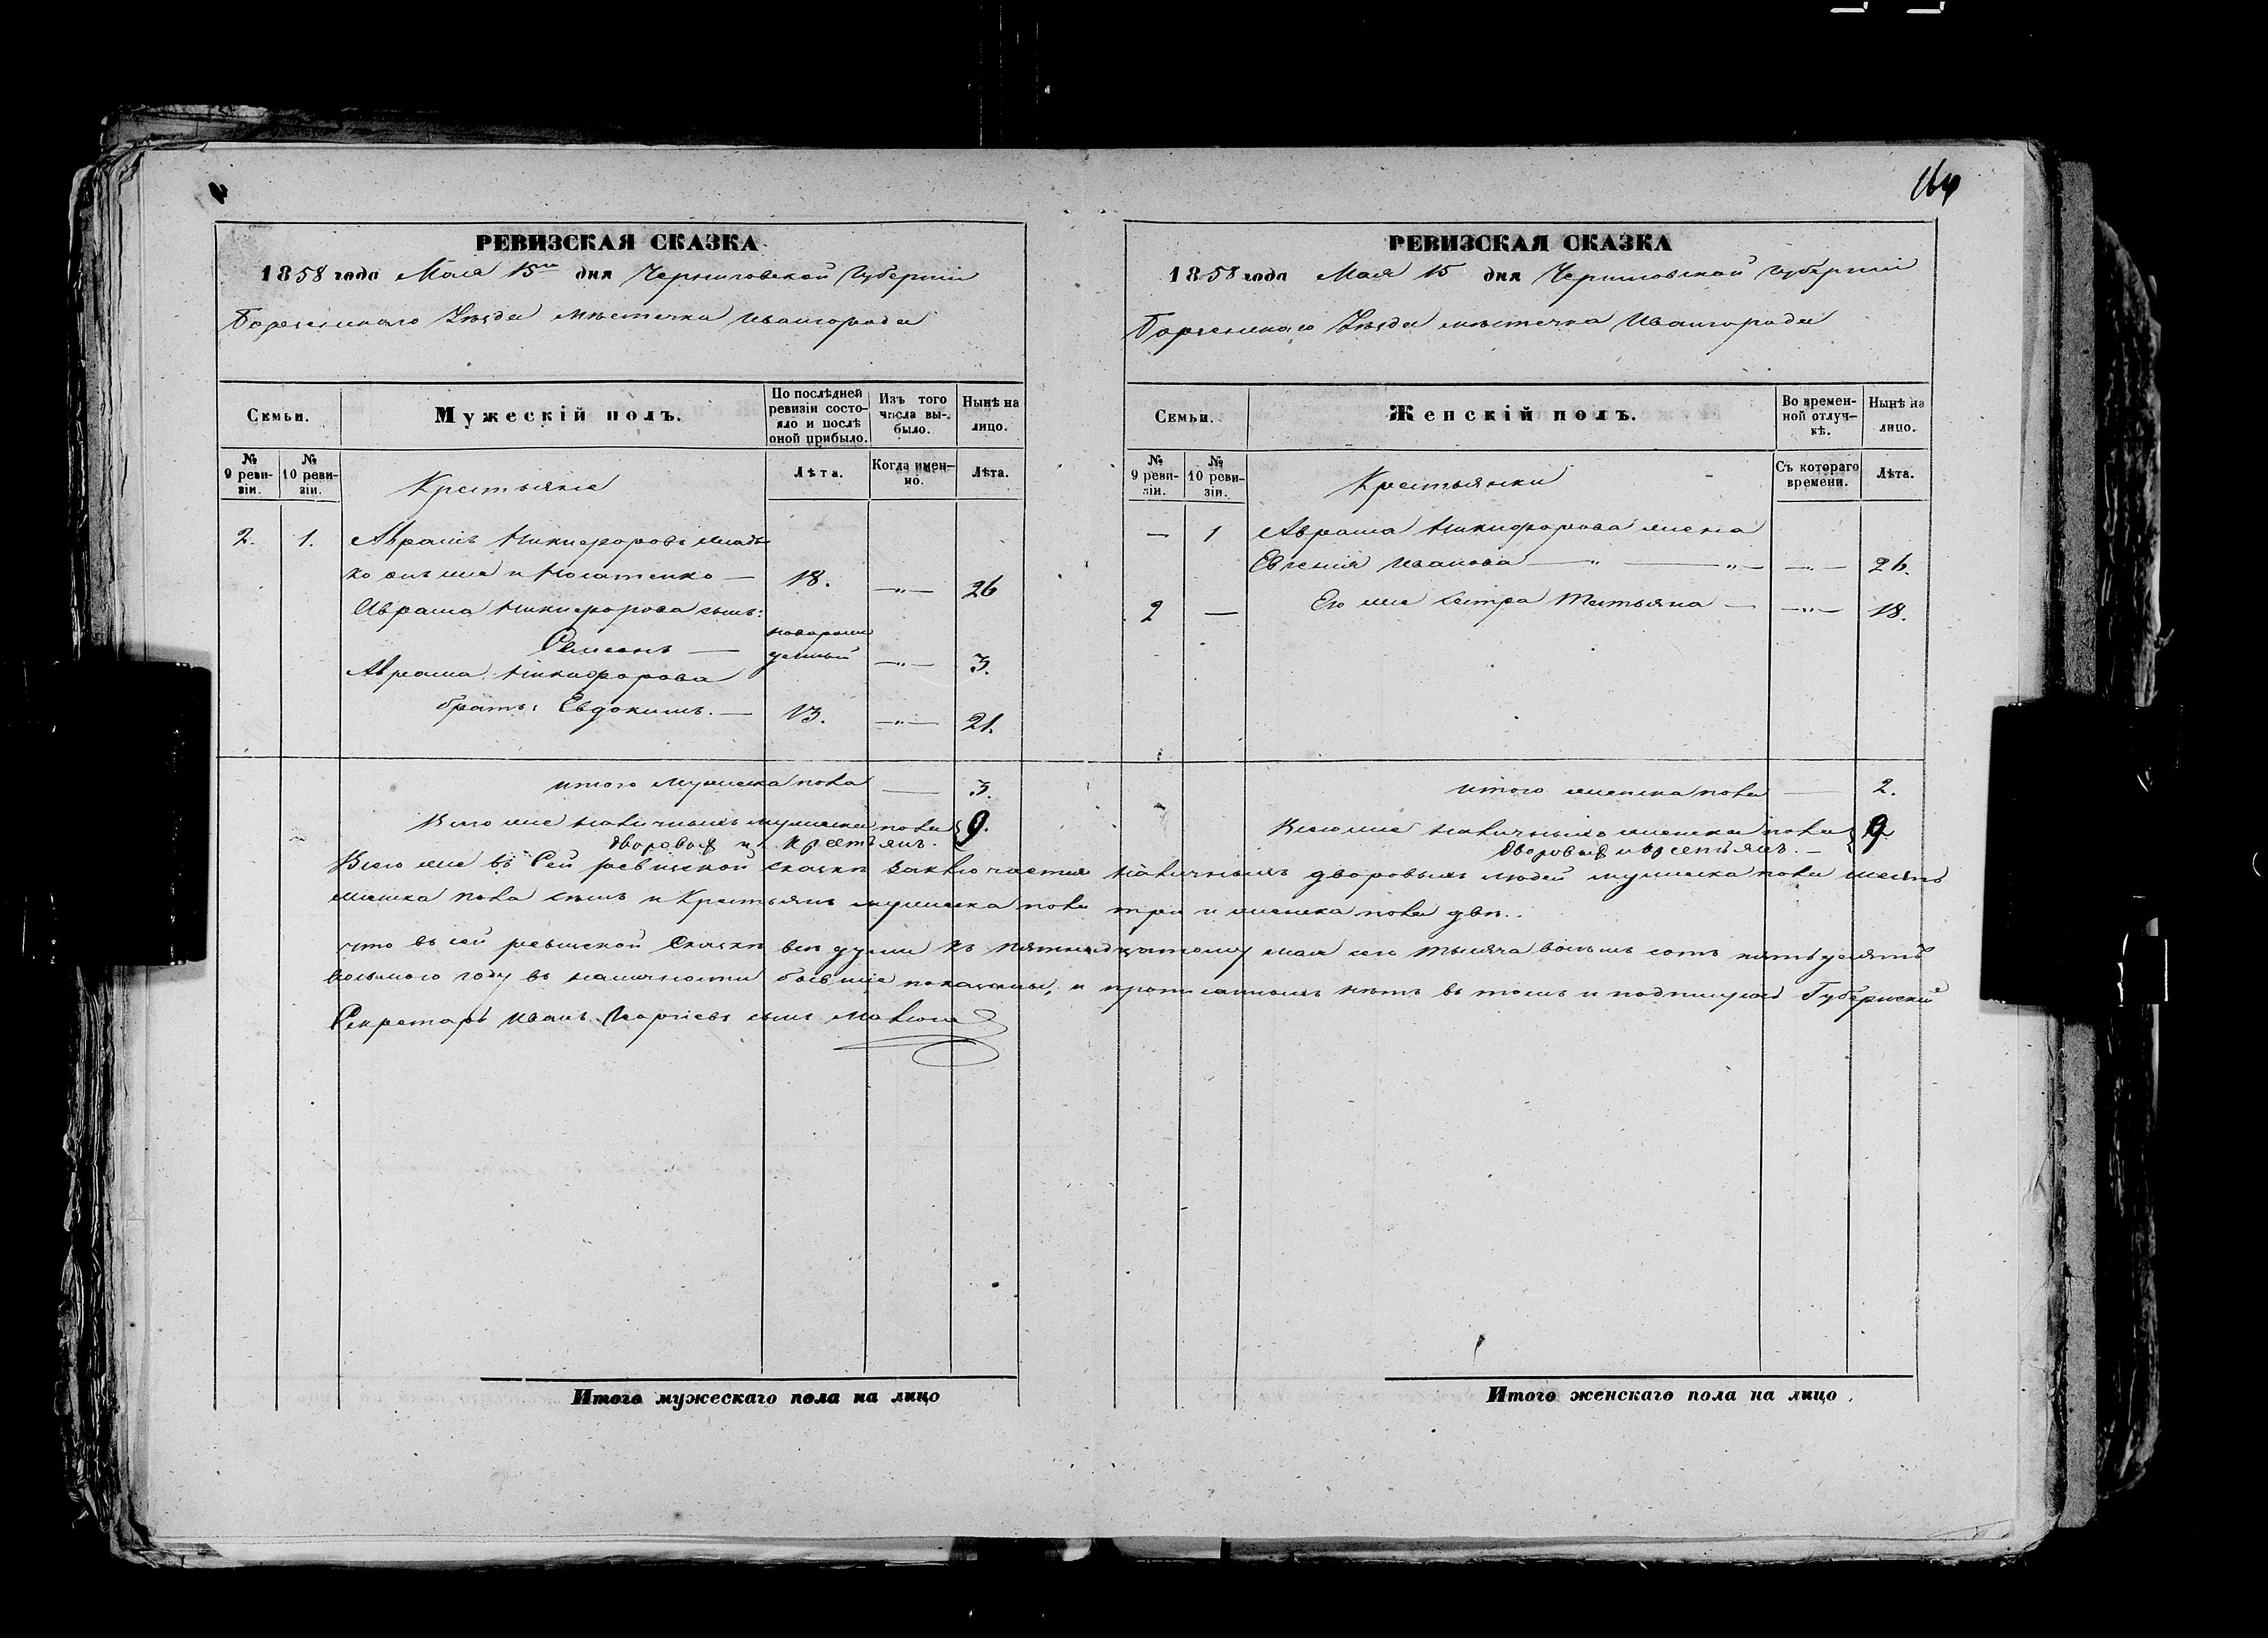 164
РЕВИЗСКАЯ СКАЗКА
1858 года Мая 15го дня Черниговской Губерніи
Борзенскаго Уѣзда мѣстечка Ивангорода
Семьи.
Мужескій полъ.
По послѣдней ревизіи состо-
яло и послѣ
оной прибыло.
Изъ того
числа вы-
было.
Нынѣ на
лицо.
№
9 реви-
зіи.
№
10 реви-
зіи.
Крестьяне
Лѣта.
Когда имен-
но.
Лѣта.
2. 1. Аврамъ Никифоровъ
онъ же и 18. —"— 26
Аврама Никифорова сынъ:
Семенъ — новорож
денный —"— 3.
Аврама Никифорова
братъ: Евдокимъ. — 13. —"— 21.
итого мужеска пола — 3.
Всего же наличныхъ мужеска пола 9.
дворовыхъ и крестьянъ.
РЕВИЗСКАЯ СКАЗКА
1858 года Мая 15 дня Черниговской Губерніи
Борзенскаго Уѣзда мѣстечка Ивангорода
Семьи.
Женскій полъ.
Во времен-
ной отлуч-
кѣ.
Нынѣ на
лицо.
№
9 реви-
зіи.
№
10 реви-
зіи.
Крестьянки
Съ котораго
времени.
Лѣта.
— 1 Аврама Никифорова жена
Евгенія Иванова —"— —"— —"— 26.
2 — Его же сестра Татьяна — —"— 18.
итого женска пола — 2.
Всего же наличныхъ женска пола 9
дворовыхъ и крестьянъ. —
Всего же въ Сей ревизской сказкѣ заключается наличныхъ дворовыхъ людей мужеска пола шесть
женска пола семь и Крестьянъ мужеска пола три и женска пола двѣ.
что въ сей ревизской Сказкѣ всѣ души къ пятнадцатому мая сего тысяча восемь сотъ пятьдесятъ
восьмого году въ наличности бывшіе показаны, и прописныхъ нѣтъ въ томъ и подпишуюсь Губернскій
Секретарь Иванъ Георгіевъ сынъ
Итого мужескаго пола на лицо
Итого женскаго пола на лицо